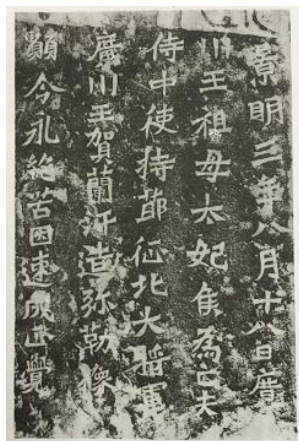 景明三年八月十八日廣
川王祖母太妃侯為亡夫
侍中使持節征北大將軍
廣川王賀蘭汗造弥勒像
願今永絕苦因速成正覺